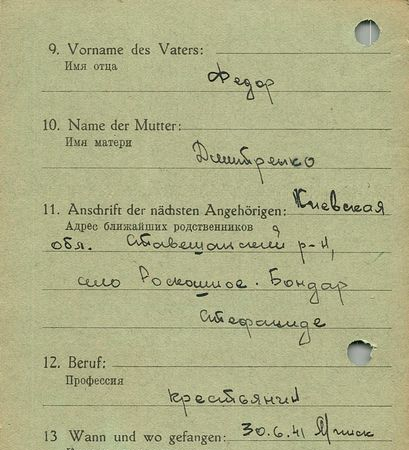 9. Vorname des Vaters:
Имя отца
Федор
10. Name der Mutter:
Имя матери
Дмитренко
11. Anschrift der nächsten Angehörigen: Киевская
Адрес ближайших родственников
обл. Ставещанский р-н,
село Роскошное. Бондар
Стефаниде
12. Beruf:
Профессия
крестьянин
13 Wann und wo gefangen: 30.6.41 Минск